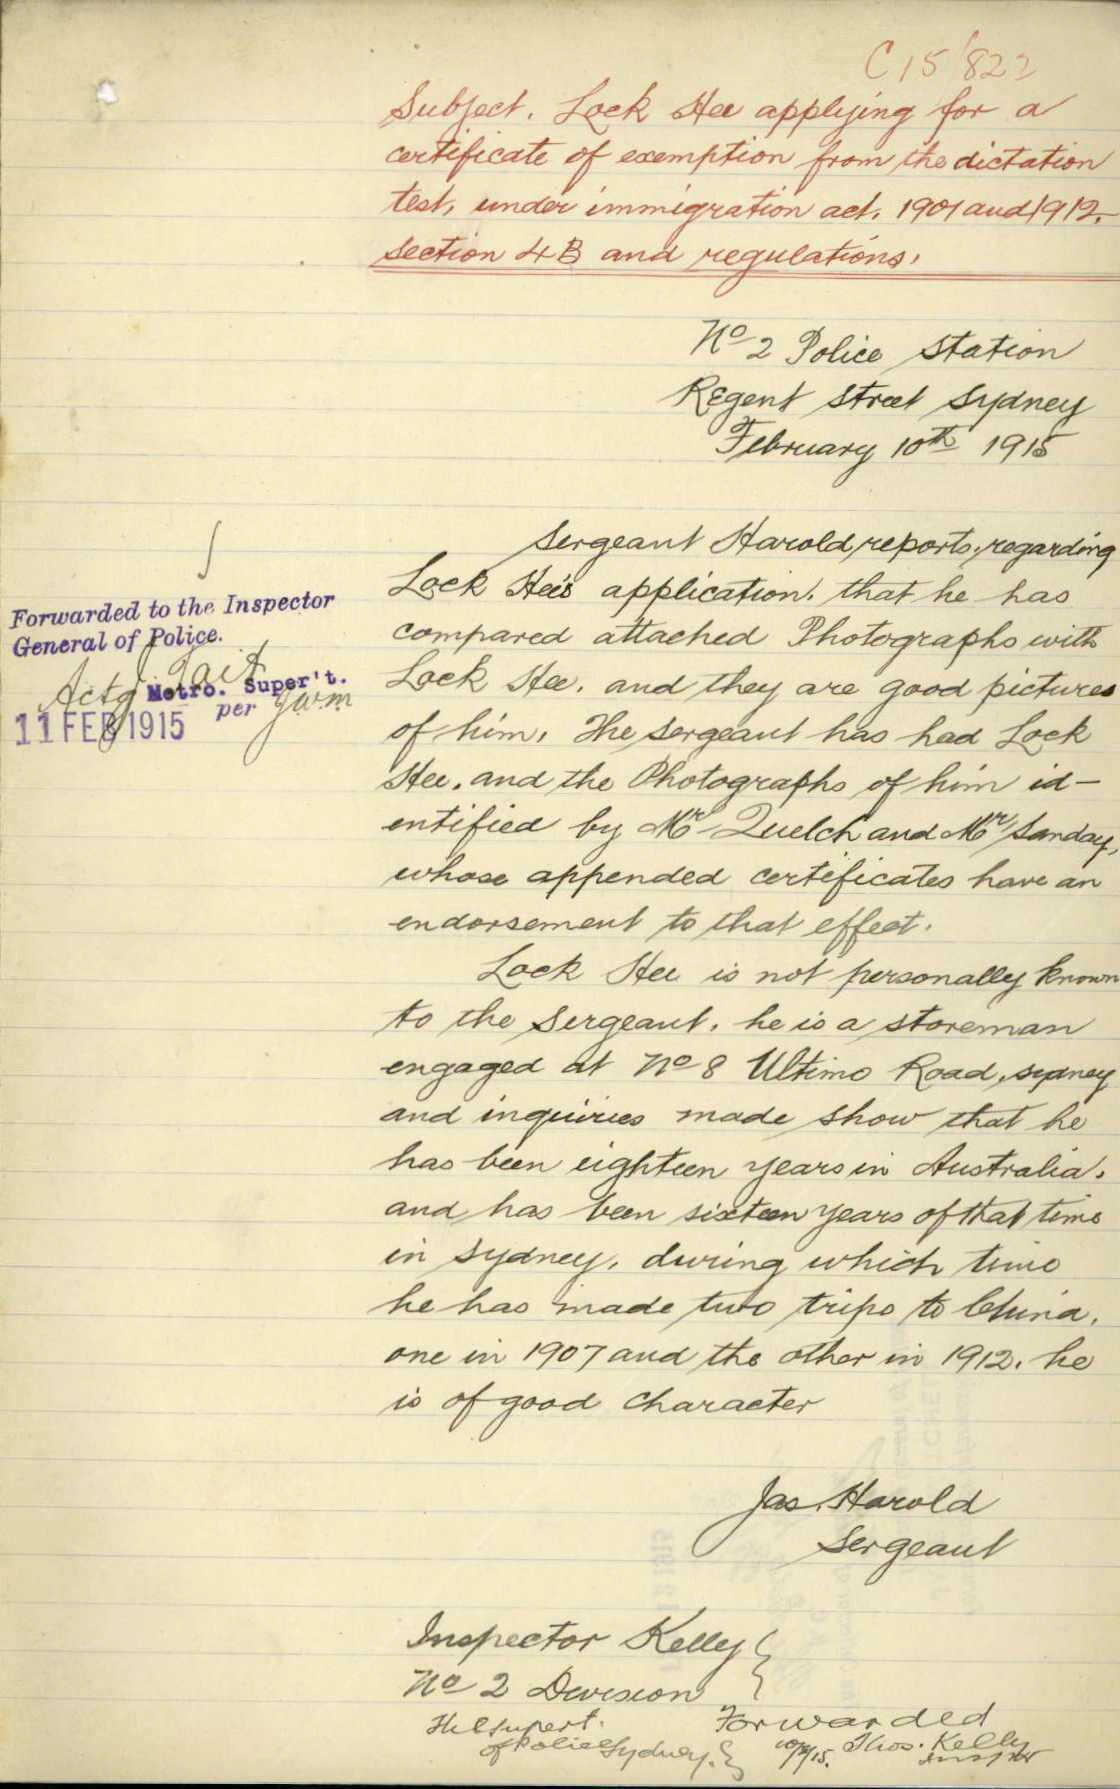 C15/822
Subject. Lock Hee applying for a
certificate of exemption from the dictation
test, under immigration act. 1901 and 1912.
section 4B and regulations.
No 2 Police Station
Regent Street Sydney
February 10th 1915
Sergeant Harold, reports, regarding
Lock Hee's application. that he has
compared attached Photographs with
Lock Hee. and they are good pictures
of him. The sergeant has had Lock
Hee. and the Photographs of him id-
entified by Mr Quelch and Mr Sanday,
whose appended certificates have an
endorsement to that effect.
Lock Hee is not personally known
to the Sergeant. he is a storeman
engaged at No 8 Ultimo Road, Sydney
and inquiries made show that he
has been eighteen years in Australia.
and has been sixteen years of that time
in Sydney, during which time
he has made two trips to China.
one in 1907 and the other in 1912. he
is of good character
Jas. Harold
Sergeant
Forwarded to the Inspector
General of Police.
J Tait
Actg Metro. Super't.
per
11 FEB 1915
Inspector Kelly
No 2 Division
The Supert.
of Police Sydney.
Forwarded
10/2/15. Thos. Kelly